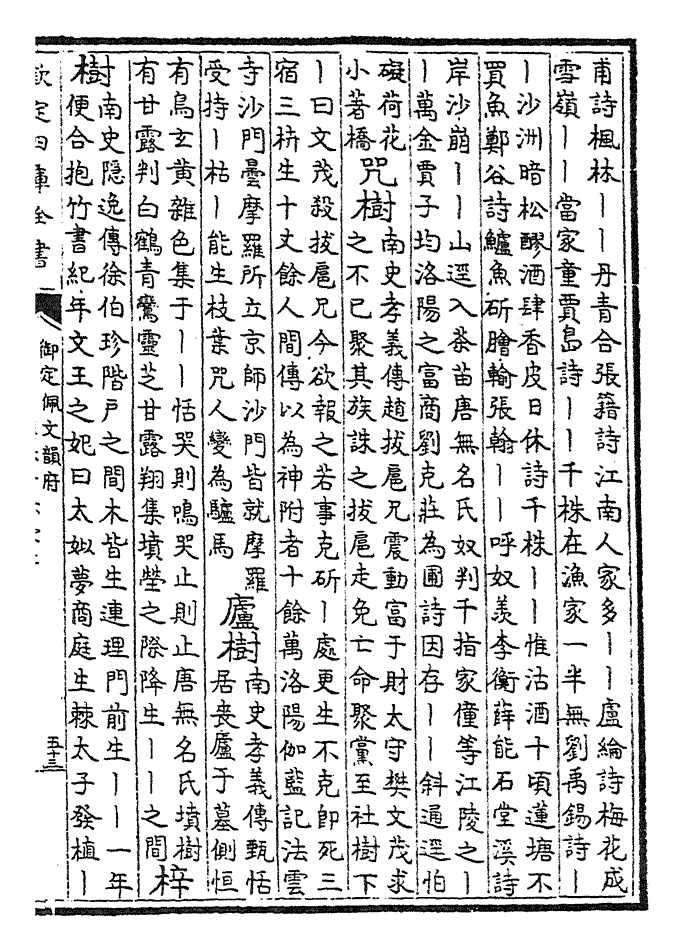 甫詩楓林丨丨丹青合張籍詩江南人家多丨丨盧綸詩梅花成
雪嶺丨丨當家童賈島詩丨丨千株在漁家一半無劉禹錫詩丨
丨沙洲暗松醪酒肆香皮日休詩千株丨丨惟沽酒十頃蓮塘不
買魚鄭谷詩鱸魚斫膾輸張翰丨丨呼奴羨李衡薛能石堂溪詩
岸沙崩丨丨山逕入茶苗唐無名氏奴判千指家僮等江陵之丨
丨萬金賈子均洛陽之富商劉克莊為圃詩因存丨丨斜通逕怕
礙荷花
小著橋
咒樹
南史孝義傳趙拔扈兄震動富于財太守樊文茂求
之不已聚其族誅之拔扈走免亡命聚黨至社樹下
丨曰文茂殺拔扈兄今欲報之若事克斫丨處更生不克即死三
宿三枿生十丈餘人間傳以為神附者十餘萬洛陽伽藍記法雲
寺沙門曇摩羅所立京師沙門皆就摩羅
受持丨枯丨能生枝葉咒人變為驢馬
廬樹
南史孝義傳甄恬
居喪廬于墓側恒
有鳥玄黃雜色集于丨丨恬哭則鳴哭止則止唐無名氏墳樹
有甘露判白鶴青鸞靈芝甘露翔集墳塋之際降生丨丨之間
梓
樹
南史隱逸傳徐伯珍階戶之間木皆生連理門前生丨丨一年
便合抱竹書紀年文王之妃曰太姒夢商庭生棘太子發植丨
欽定四庫全書
御定佩文韻府
五十三